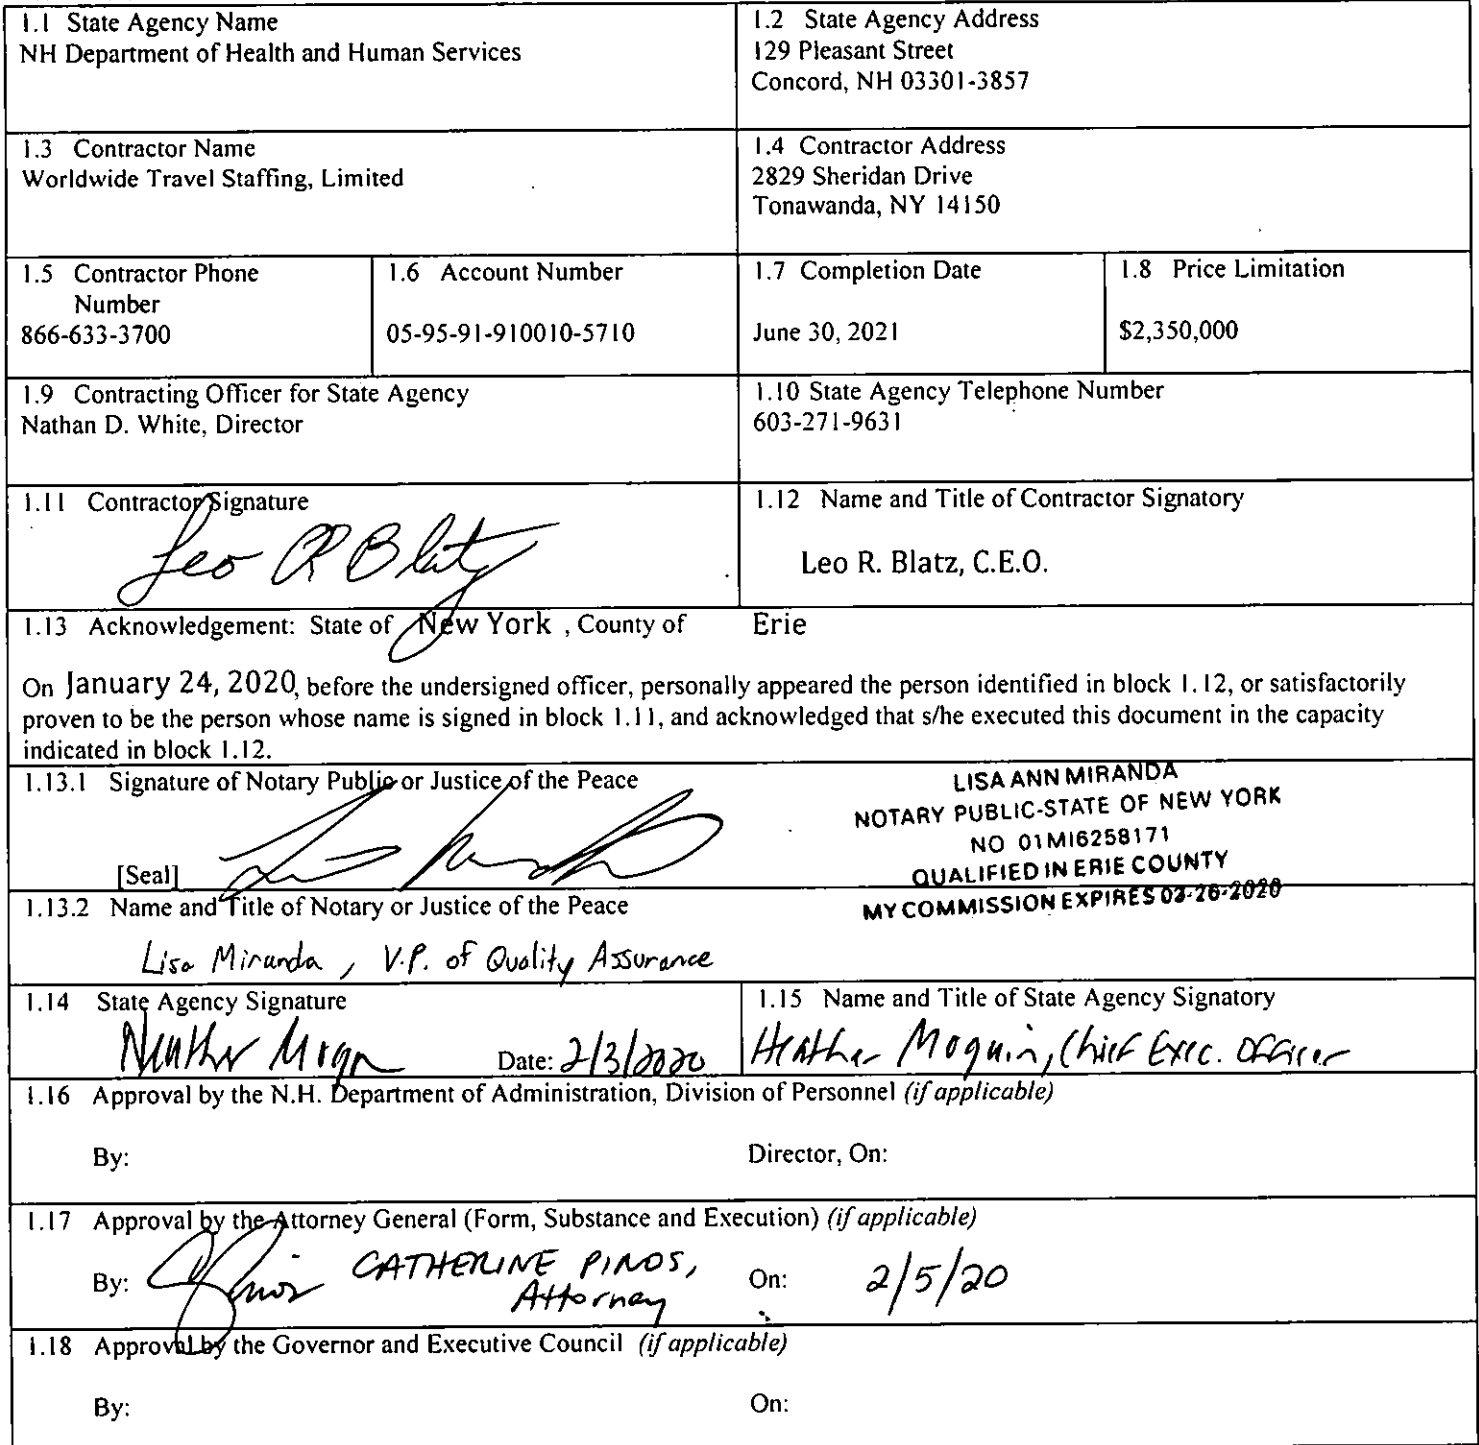 1.1 State Agency Name
NH Department of Health and Human Services
1.2 State Agency Address
129 Pleasant Street
Concord, NH 03301-3857
1.3 Contractor Name
Worldwide Travel Staffing, Limited
1.4 Contractor Address
2829 Sheridan Drive
Tonawanda, NY 14150
1.5 Contractor Phone
Number
866-633-3700
1.6 Account Number
05-95-91-910010-5710
1.7 Completion Date
June 30, 2021
1.8 Price Limitation
$2,350,000
1.9 Contracting Officer for State Agency
Nathan D. White, Director
1.10 State Agency Telephone Number
603-271-9631
1.11 Contractor Signature
Leo R Blatz
1.12 Name and Title of Contractor Signatory
Leo R. Blatz, C.E.O.
1.13 Acknowledgement: State of New York , County of Erie
On January 24, 2020, before the undersigned officer, personally appeared the person identified in block 1.12, or satisfactorily
proven to be the person whose name is signed in block 1.11, and acknowledged that s/he executed this document in the capacity
indicated in block 1.12.
1.13.1 Signature of Notary Public or Justice of the Peace
[Seal]
LISA ANN MIRANDA
NOTARY PUBLIC-STATE OF NEW YORK
NO 01MI6258171
QUALIFIED IN ERIE COUNTY
MY COMMISSION EXPIRES
1.13.2 Name and Title of Notary or Justice of the Peace
Lisa Miranda, V.P. of Quality Assurance
1.14 State Agency Signature
Date: 2/3/2020
1.15 Name and Title of State Agency Signatory
Heather Moquin, Chief Exec. Officer
1.16 Approval by the N.H. Department of Administration, Division of Personnel (if applicable)
By:
Director, On:
1.17 Approval by the Attorney General (Form, Substance and Execution) (if applicable)
By: CATHERINE PINOS,
Attorney
On: 2/5/20
1.18 Approval by the Governor and Executive Council (if applicable)
By:
On: